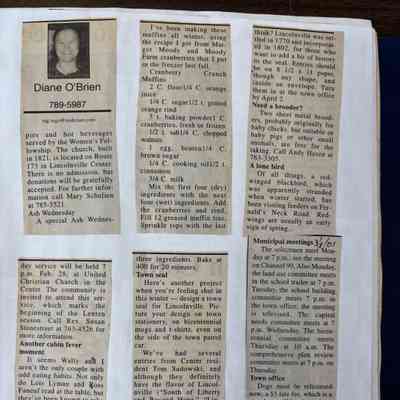 Diane O'Brien
789-5987
pies and hot beverages
served by the Women's Fel-
lowship. The church, built
in 1821, is located on Route
173 in Lincolnville Center.
There is no admission, but
donations will be gratefully
accepted. For further infor-
mation call Mary Schulien
at 785-3521.
Ash Wednesday
A special Ash Wednes-
day service will be held 7
p.m. Feb. 28, at United
Christian Church in the
Center. The community is
invited to attend this ser-
vice, which marks the
beginning of the Lenten
season. Call Rev. Susan
Stonestreet at 763-4526 for
more information.
Another cabin fever
moment
It seems Wally and I
aren't the only couple with
odd eating habits. Not only
do Lois Lyman and Ross
Funeral read at the table, but
I've been making these
muffins all winter, using
the recipe I got from Mar-
got Moody and Moody
Farm cranberries that I put
in the freezer last fall.
Cranberry Crunch
Muffins
2 C. flour1/4 C. orange
juice
1/4 C. sugar1/2 t. grated
orange rind
3 t. baking powder1 C.
cranberries, fresh or frozen
1/2 t. salt1/4 C. chopped
walnuts
1 egg, beaten1/4 C.
brown sugar
1/4 C. cooking oil1/2 t.
cinnamon
3/4 C. milk
Mix the first four (dry)
ingredients with the next
four (wet) ingredients. Add
the cranberries and rend.
Fill 12 greased muffin tins.
Sprinkle tops with the last
three ingredients. Bake at
400 for 20 minutes.
Town seal
Here's another project
when you're feeling shut in
this winter — design a town
seal for Lincolnville. Pic-
ture your design on town
stationery, on bicentennial
mugs and t-shirts, even on
the side of the town patrol
car.
We've had several
entries from Center resi-
dent Tom Sadowski, and
although they definitely
have the flavor of Lincol-
nville ("South of Liberty
think? Lincolnville was set-
tled in 1770 and incorporat-
ed in 1802, for those who
want to add a bit of history
to the seal. Entries should
be on 8 1/2 x 11 paper,
though any shape, and
inside an envelope. Turn
them in at the town office
by April 2.
Need a brooder?
Two sheet metal brood-
ers, probably originally for
baby chicks, but suitable for
baby pigs or other small
animals, are free for the
taking. Call Andy Hazen at
763-3305.
A lone bird
Of all things, a red-
winged blackbird, which
was apparently stranded
when winter started, has
been visiting feeders on Fer-
nald's Neck Road. Red-
wings are usually an early
sign of spring.
Municipal meetings
The selectmen meet Mon-
day at 7 p.m.; see the meeting
on Channel 90. Also Monday,
the land use committee meets
in the school trailer at 7 p.m.
Tuesday, the school building
committee meets 7 p.m. in
the town office; the meeting
is televised. The capital
needs committee meets at 7
p.m. Wednesday. The bicen-
tennial committee meets
Thursday at 10 a.m. The
comprehensive plan review
committee meets at 7 p.m.
Thursday.
Town office
Dogs must be relicensed